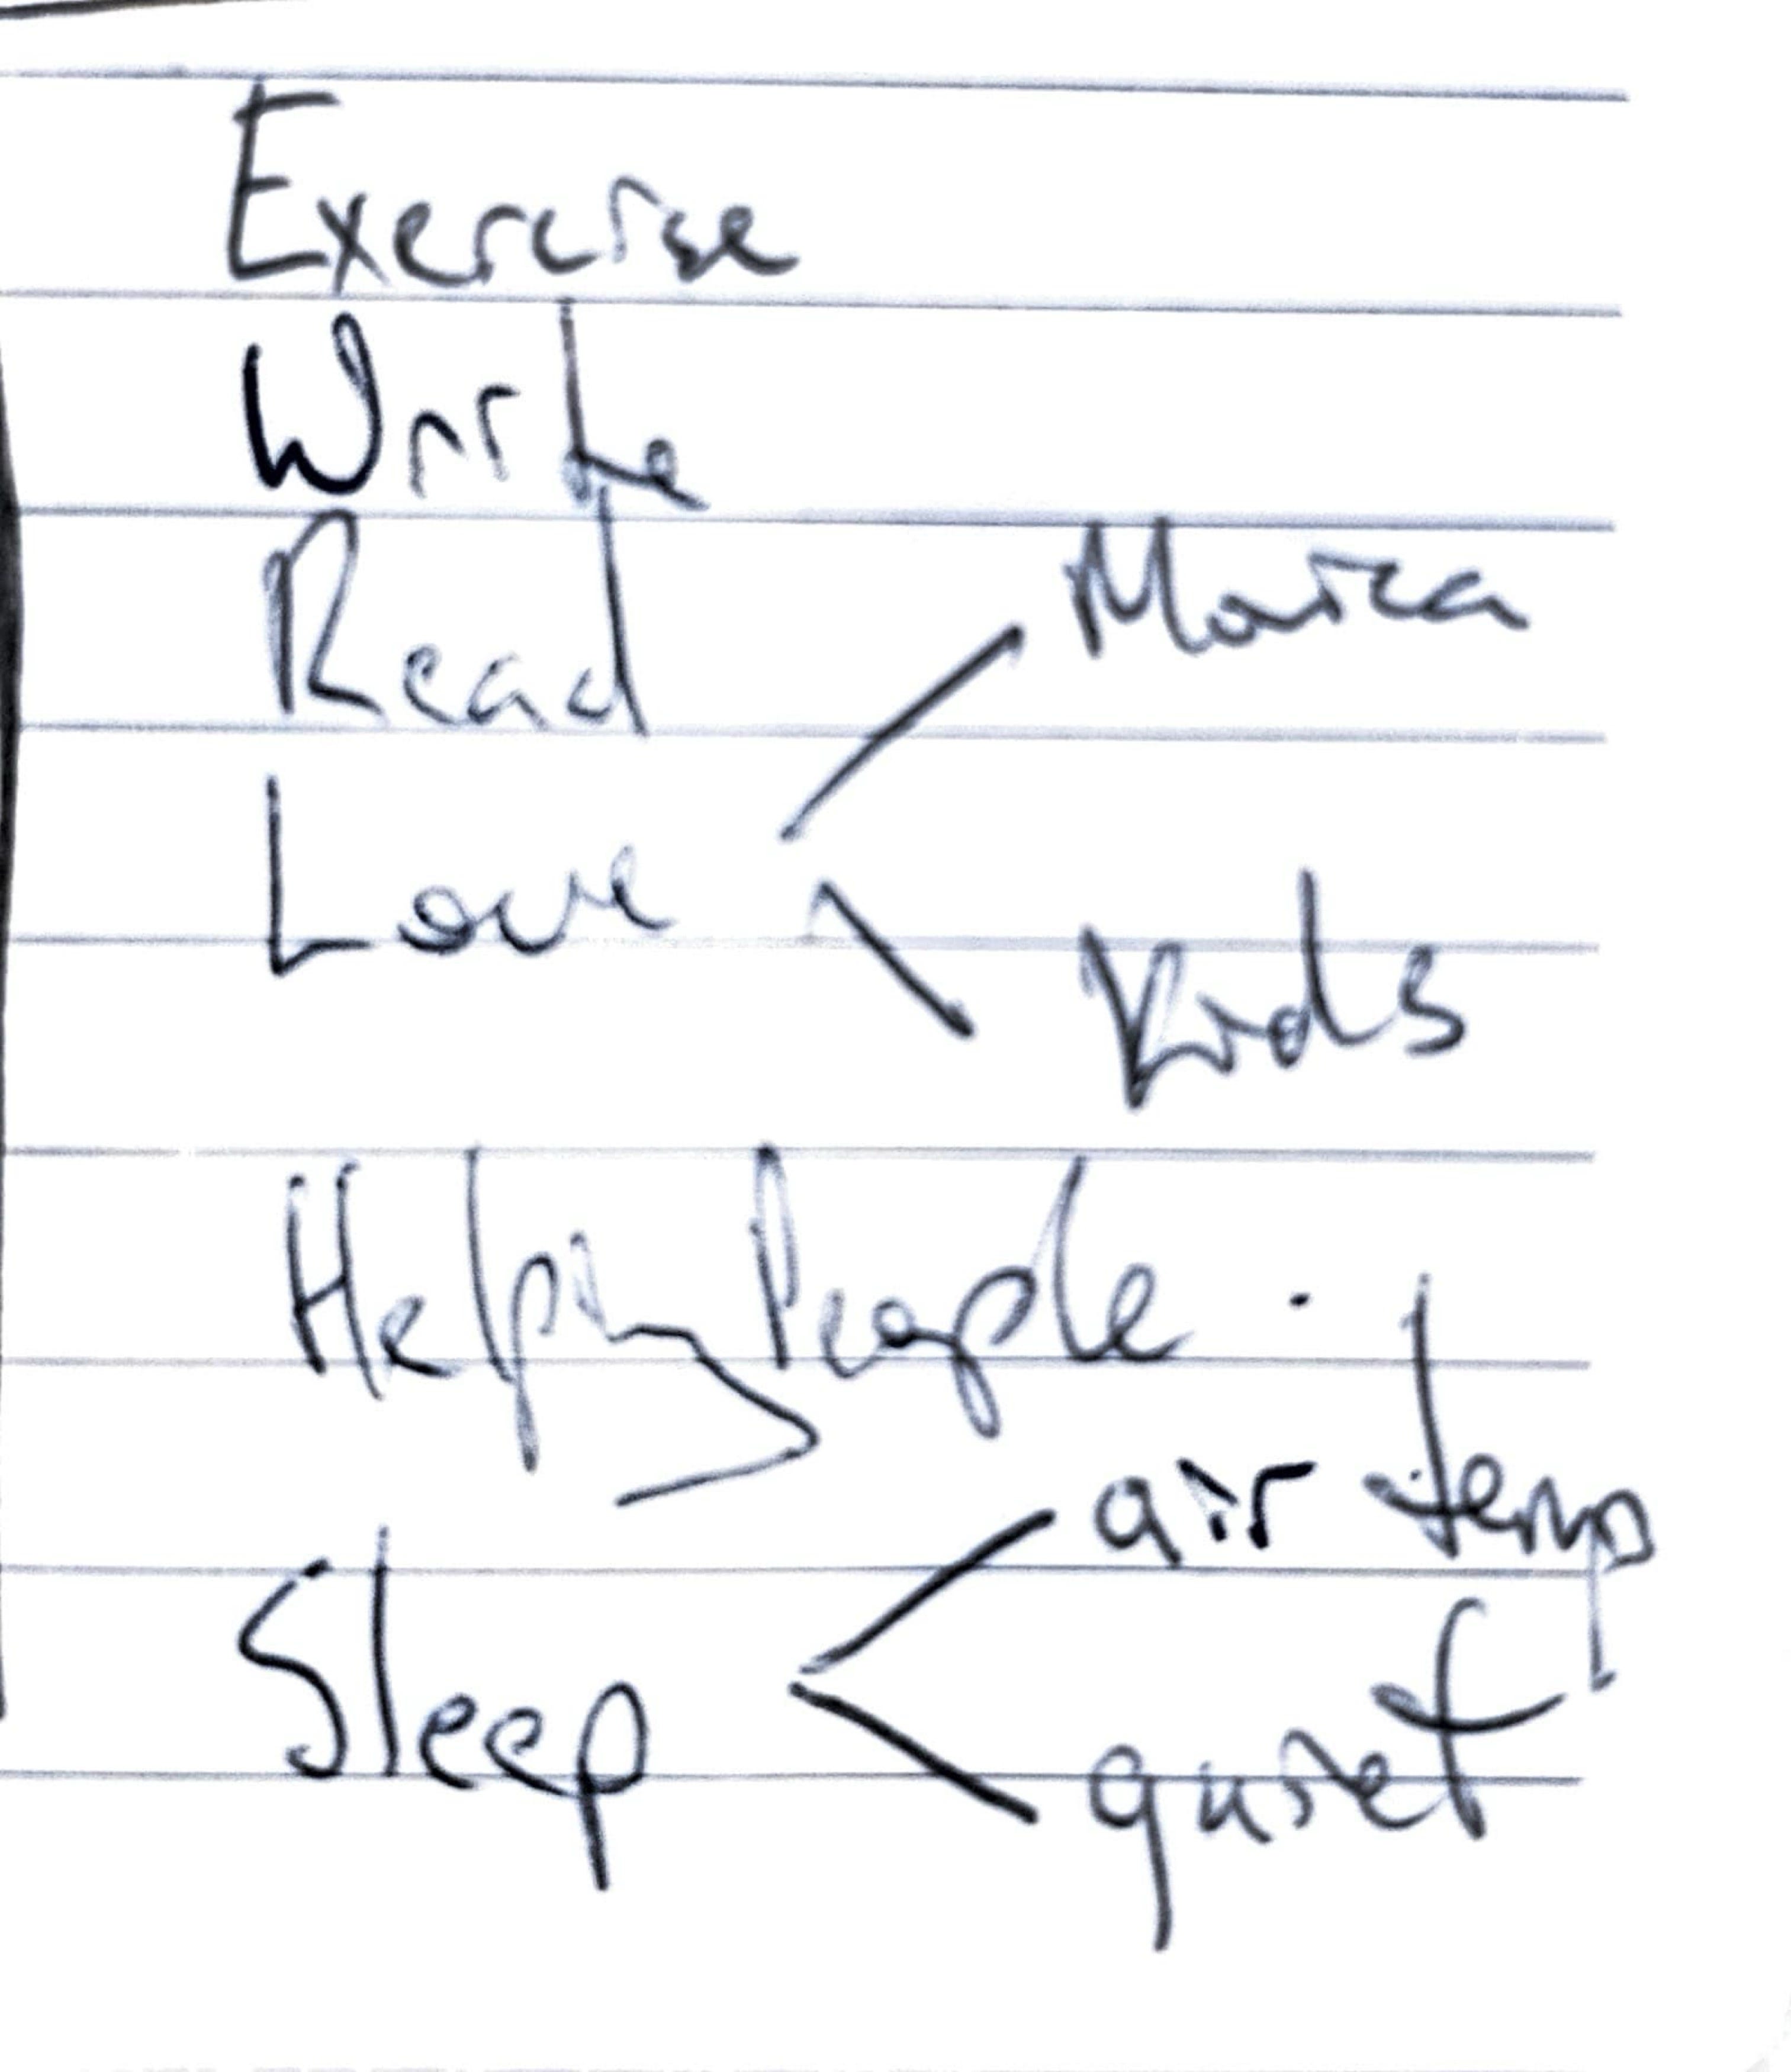 Exercise
Write
Read
Love
Kids
Helping People.
Sleep
air temp
quiet